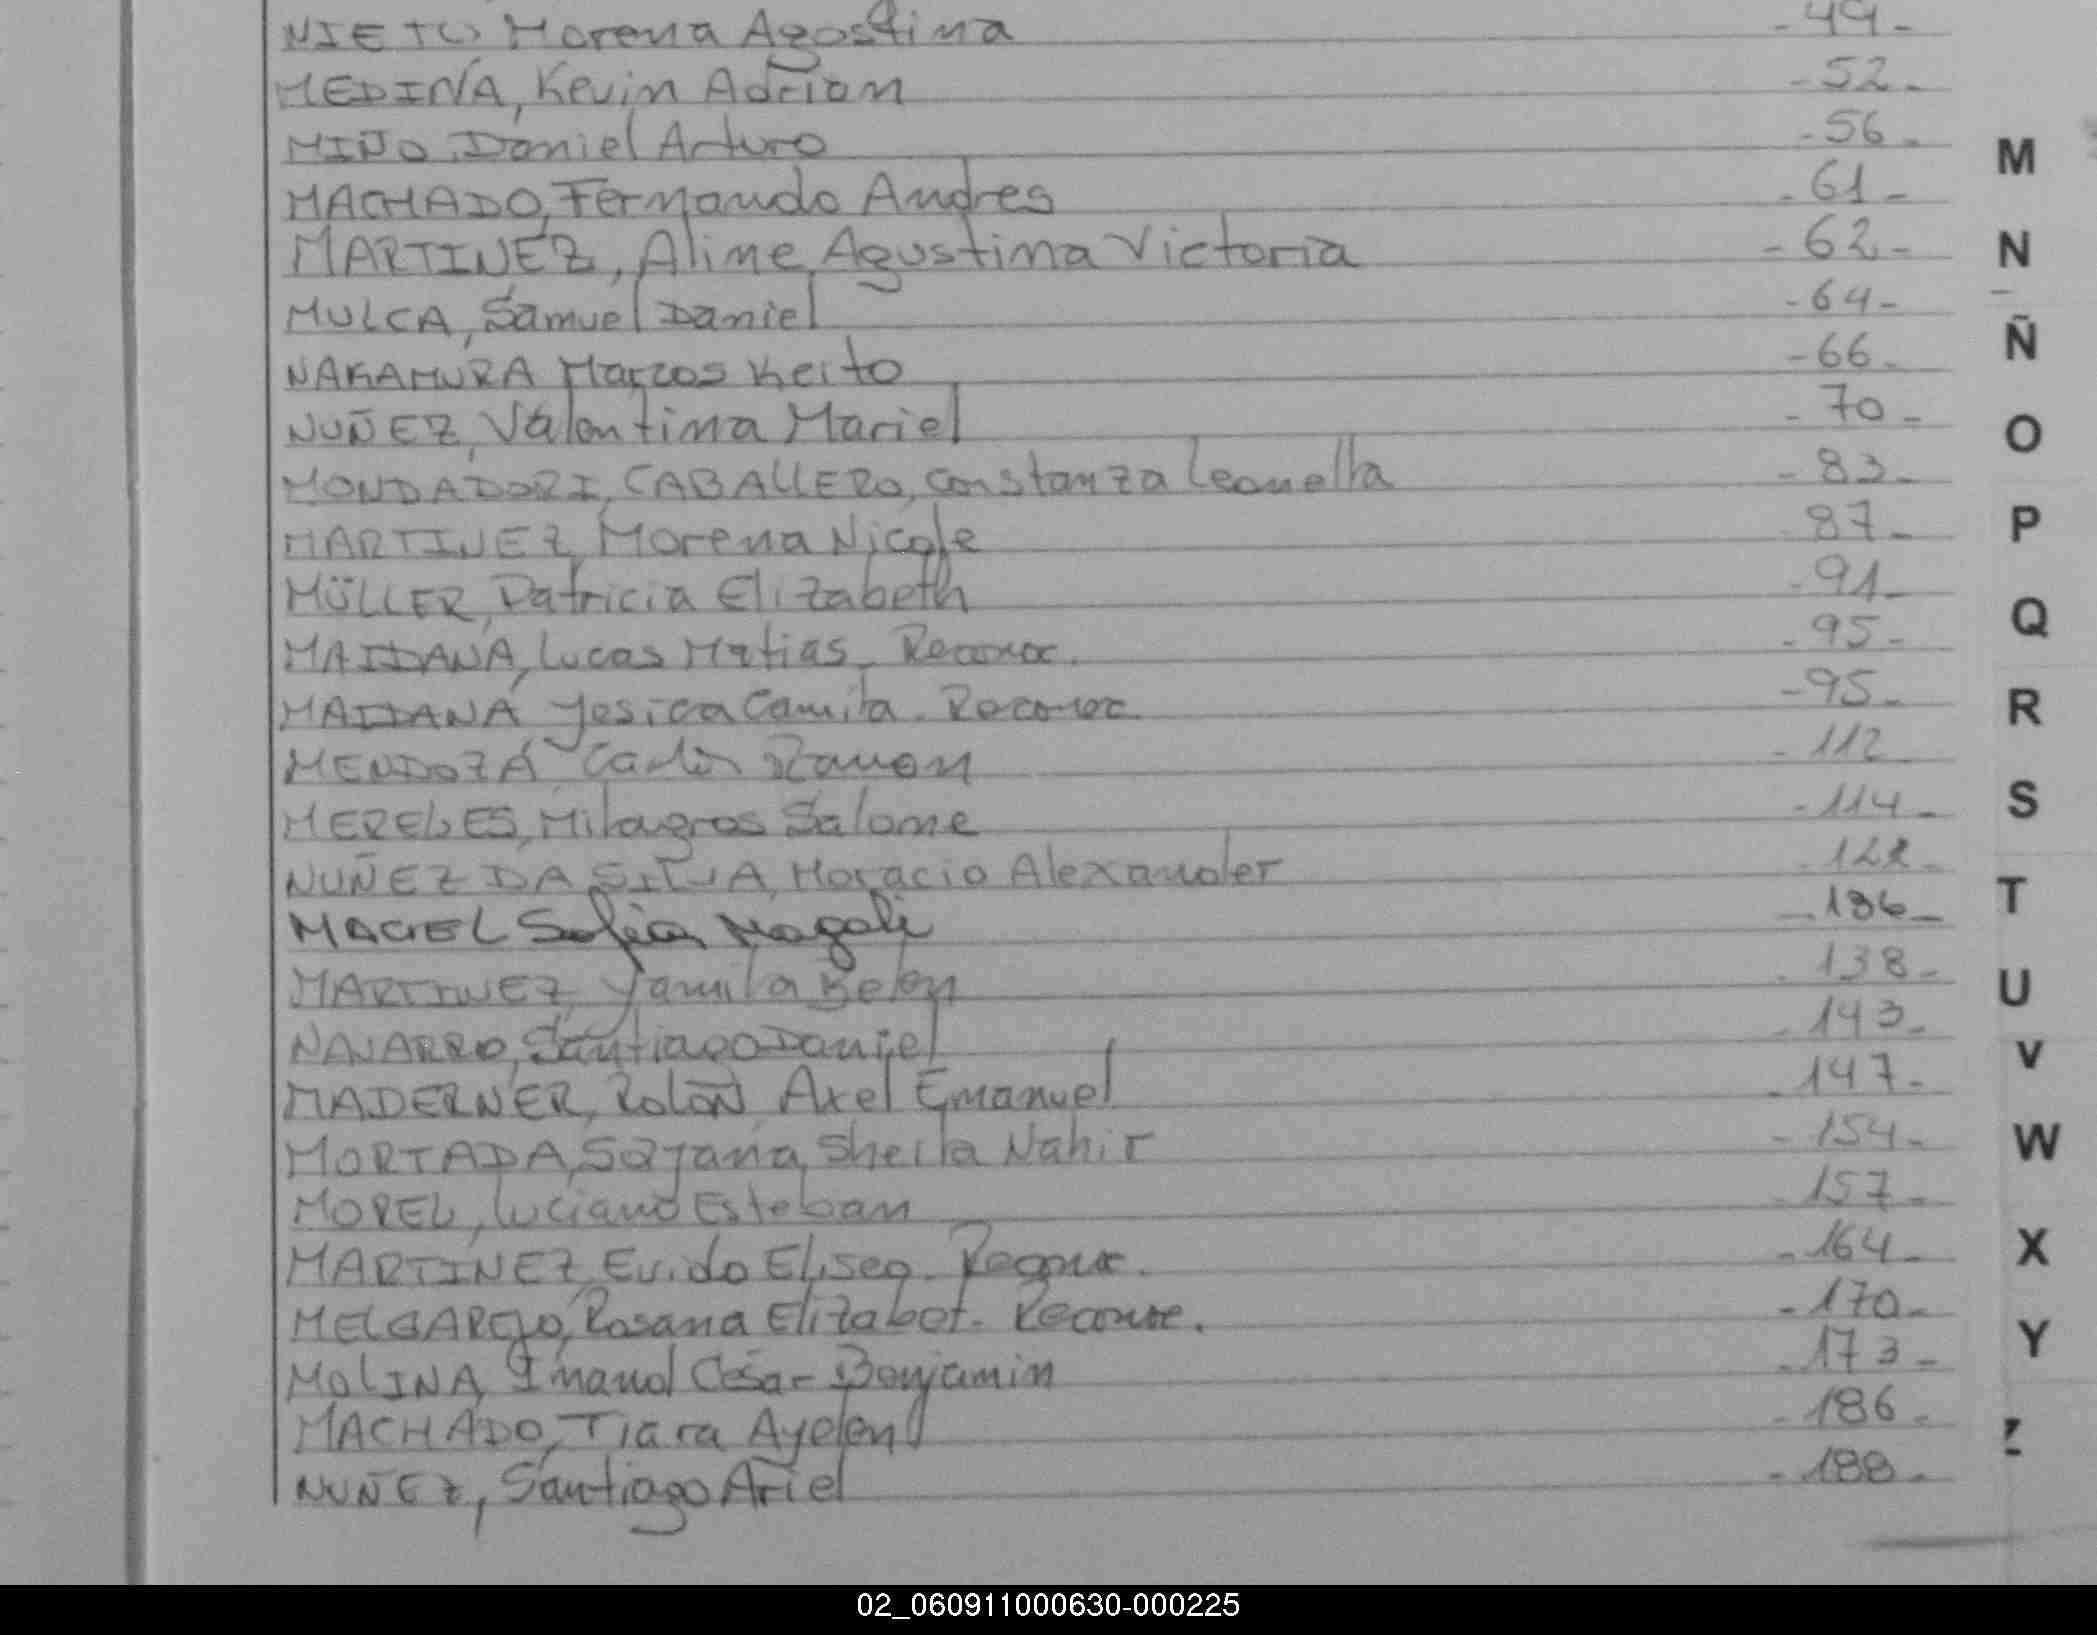 NIETO Morena Agostina -49-
MEDINA, Kevin Adrian -52-
MIÑO, Daniel Arturo -56-
MACHADO, Fernando Andres -61-
MARTINEZ, Aline Agustina Victoria -62-
MULCA, Samuel Daniel -64-
NAKAMURA Marcos Keito -66-
NUÑEZ, Valentina Mariel -70-
MONDADORI, CABALLERO, Constanza Leonella -83-
MARTINEZ, Morena Nicole 87-
MÜLLER, Patricia Elizabeth -91-
MAIDANA, Lucas Matias. Reconoc. -95-
MAIDANA Yesica Camila. Reconoc -95-
MENDOZA Carlos Ramon -112-
MERELES, Milagros Salome -114-
NUÑEZ DA SILVA, Horacio Alexander -122-
MACIEL Sofia Magali -136-
MARTINEZ, Yamila Belen -138-
NAVARRO, Santiago Daniel -143-
MADERNER, Rolón Axel Emanuel -147-
MORTADA, Sheila Nahir -154-
MOREL, Luciano Esteban -157-
MARTINEZ, Evido Eliseo. Reconoc. -164-
MELGAREJO, Rosana Elizabet. Reconoc. -170-
MOLINA, Cesar Benjamin -173-
MACHADO, Tiara Ayelen -186-
NUÑEZ, Santiago Ariel -188-
M
N
Ñ
O
P
Q
R
S
T
U
V
W
X
Y
Z
02_060911000630-000225